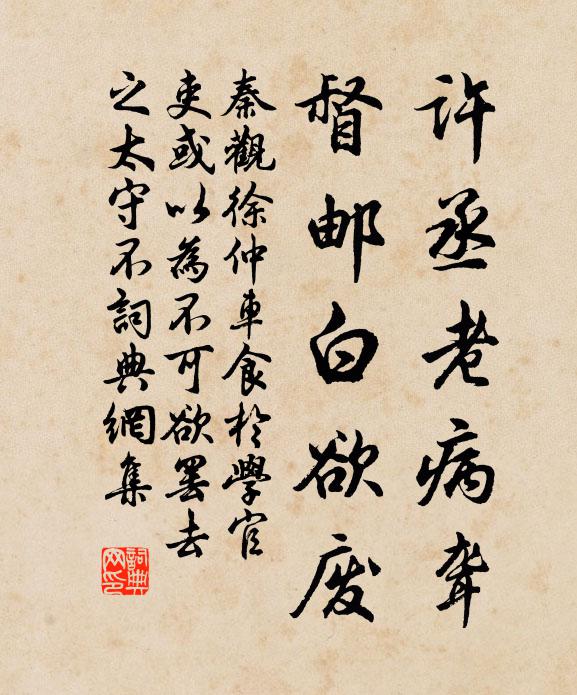 許丞老病聋
督邮白欲废
秦觀徐仲車食於學官
吏或以為不可欲罢去
之太守不詞典網集
詞典网印